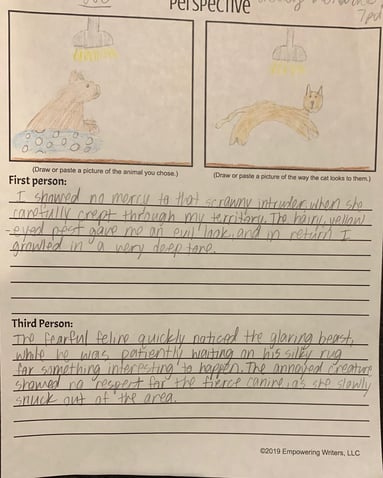 Perspective
7pm
(Draw or paste a picture of the animal you chose.)
(Draw or paste a picture of the way the cat looks to them.)
First person:
I showed no mercy to that scrawny intruder when she
carefully crept through my territory. The hairy, yellow
-eyed pest gave me an evil look, and in return I
growled in a very deep tone.
Third Person:
The fearful feline quickly noticed the glaring beast,
while he was patiently waiting on his silky rug
for something interesting to happen. The annoyed creature
showed no respect for the fierce canine, as she slowly
snuck out of the area.
©2019 Empowering Writers, LLC